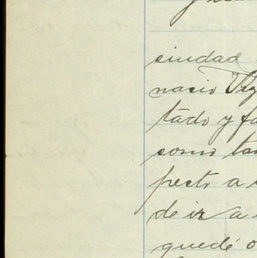 ciudad
nacio Veg
tado y fa
como tan
pecto a
de ir a
quedé o